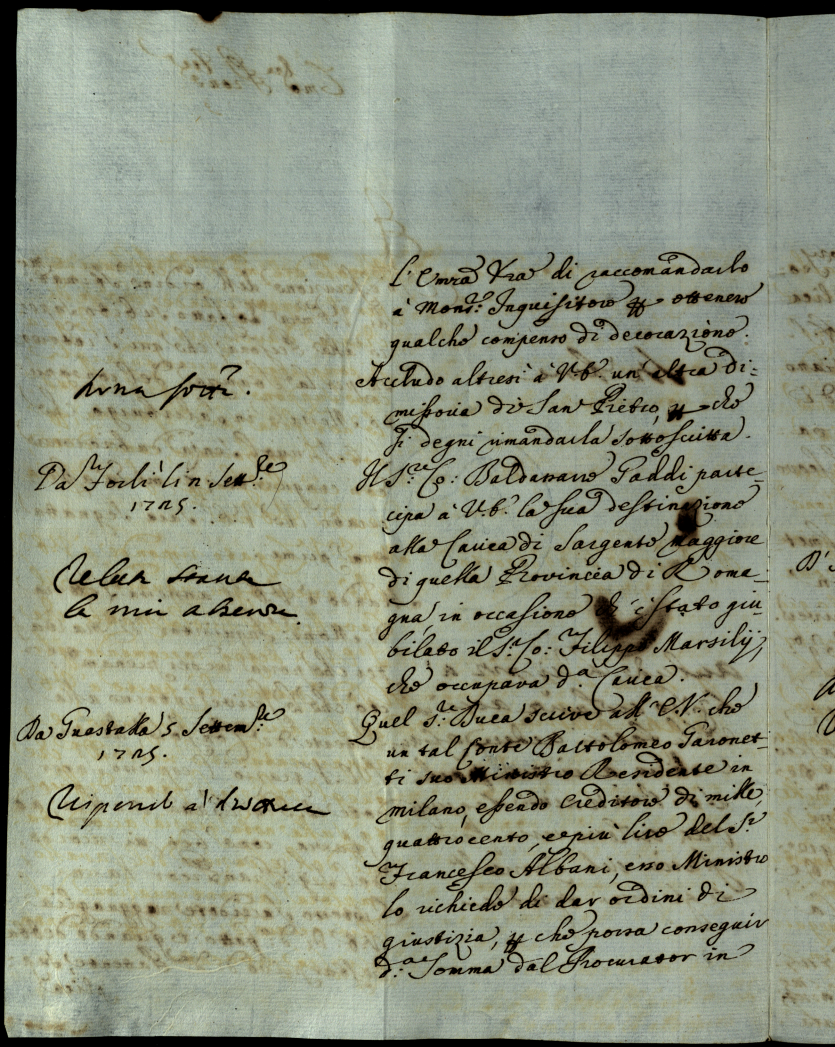 L'Emza Vra di raccomandarlo
à Mons.r Inquisitore ꝑ ottenere
qualche compenso di decorazione.
Accludo altresì à V.E. un'altra di=
missoria di San Pietro, ꝑ che
si degni rimandarla sottoscritta.
Da Forlì li Sett.re
1725.
Il S.re Co: Baldassarre Gaddi parte=
cipa à V.E. la sua destinazione
alla Carica di Sargente maggiore
di quella Provincia di Roma=
gna, in occasione di è stato giu=
bilato il S.r Co: Filippo Marsilij,
che occupava d.a Carica.
la mia assenza.
Da Guastalla 5 Settem.re
1725.
Quel S.re Duca scrive all'E.V. che
un tal Conte Bartolomeo Garonet=
ti suo Ministro Residente in
milano, essendo Creditore di mille,
quattrocento, e più lire del S.r
Francesco Albani, esso Ministro
lo richiede di dar ordini di
giustizia, ꝑ che possa conseguir
d.a Somma dal Procurator in